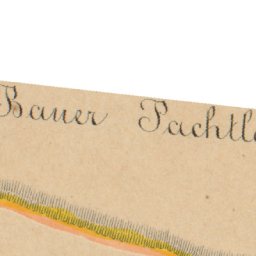 Bauer Pachtl